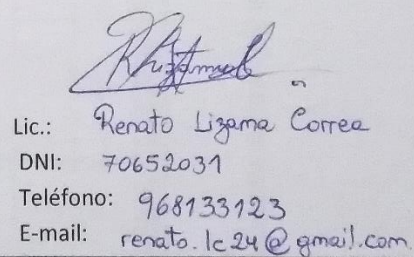 Lic.: Renato Lizama Correa
DNI: 70652031
Teléfono: 968133123
E-mail: renato.lc24@gmail.com